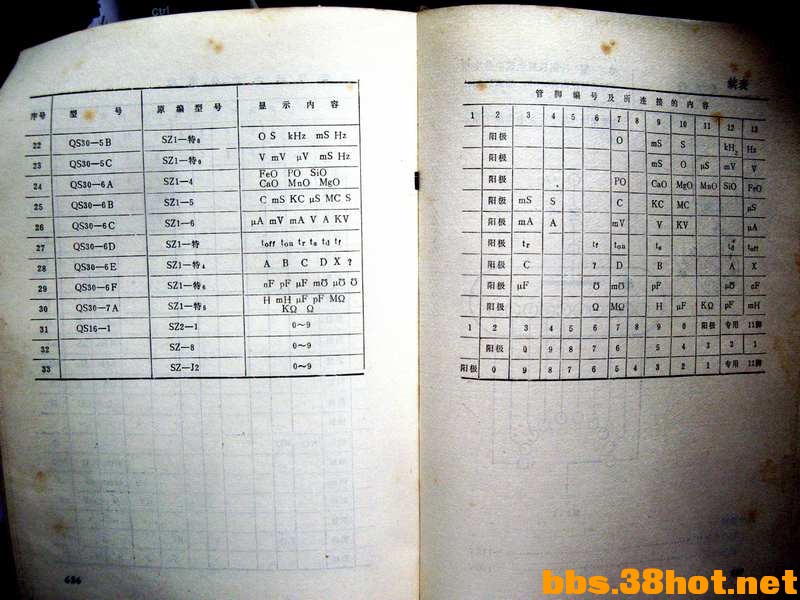 序号 型 号 原编型号 显示内容
22 QS30—5B SZ1—特₈ O S kHz mS Hz
23 QS30—5C SZ1—特₉ V mV μV mS Hz
24 QS30—6A SZ1—4 FeO PO SiO
CaO MnO MgO
25 QS30—6B SZ1—5 C mS KC μS MC S
26 QS30—6C SZ1—6 μA mV mA V A KV
27 QS30—6D SZ1—特 toff ton tr ts td tf
28 QS30—6E SZ1—特₄ A B C D X ?
29 QS30—6F SZ1—特₅ nF pF μF m℧ μ℧ ℧
30 QS30—7A SZ1—特₆ H mH μF pF MΩ
KΩ Ω
31 QS16—1 SZ2—1 0~9
32 SZ—8 0~9
33 SZ—J2 0~9
续表
管脚编号及所连接的内容
1 2 3 4 5 6 7 8 9 10 11 12 13
阳极 O mS S kHz Hz
阳极 mS O μS mV V
阳极 PO CaO MgO MnO SiO FeO
阳极 mS S C KC MC μS
阳极 mA A mV V KV μA
阳极 tr tf ton ts td toff
阳极 C ? D B A X
阳极 μF ℧ m℧ pF μ℧ nF
阳极 Ω MΩ H μF KΩ pF mH
1 2 3 4 5 6 7 8 9 0 阳极 专用 11脚
阳极 0 9 8 7 6 5 4 3 2 1
阳极 0 9 8 7 6 5 4 3 2 1 专用 11脚
bbs.38hot.net